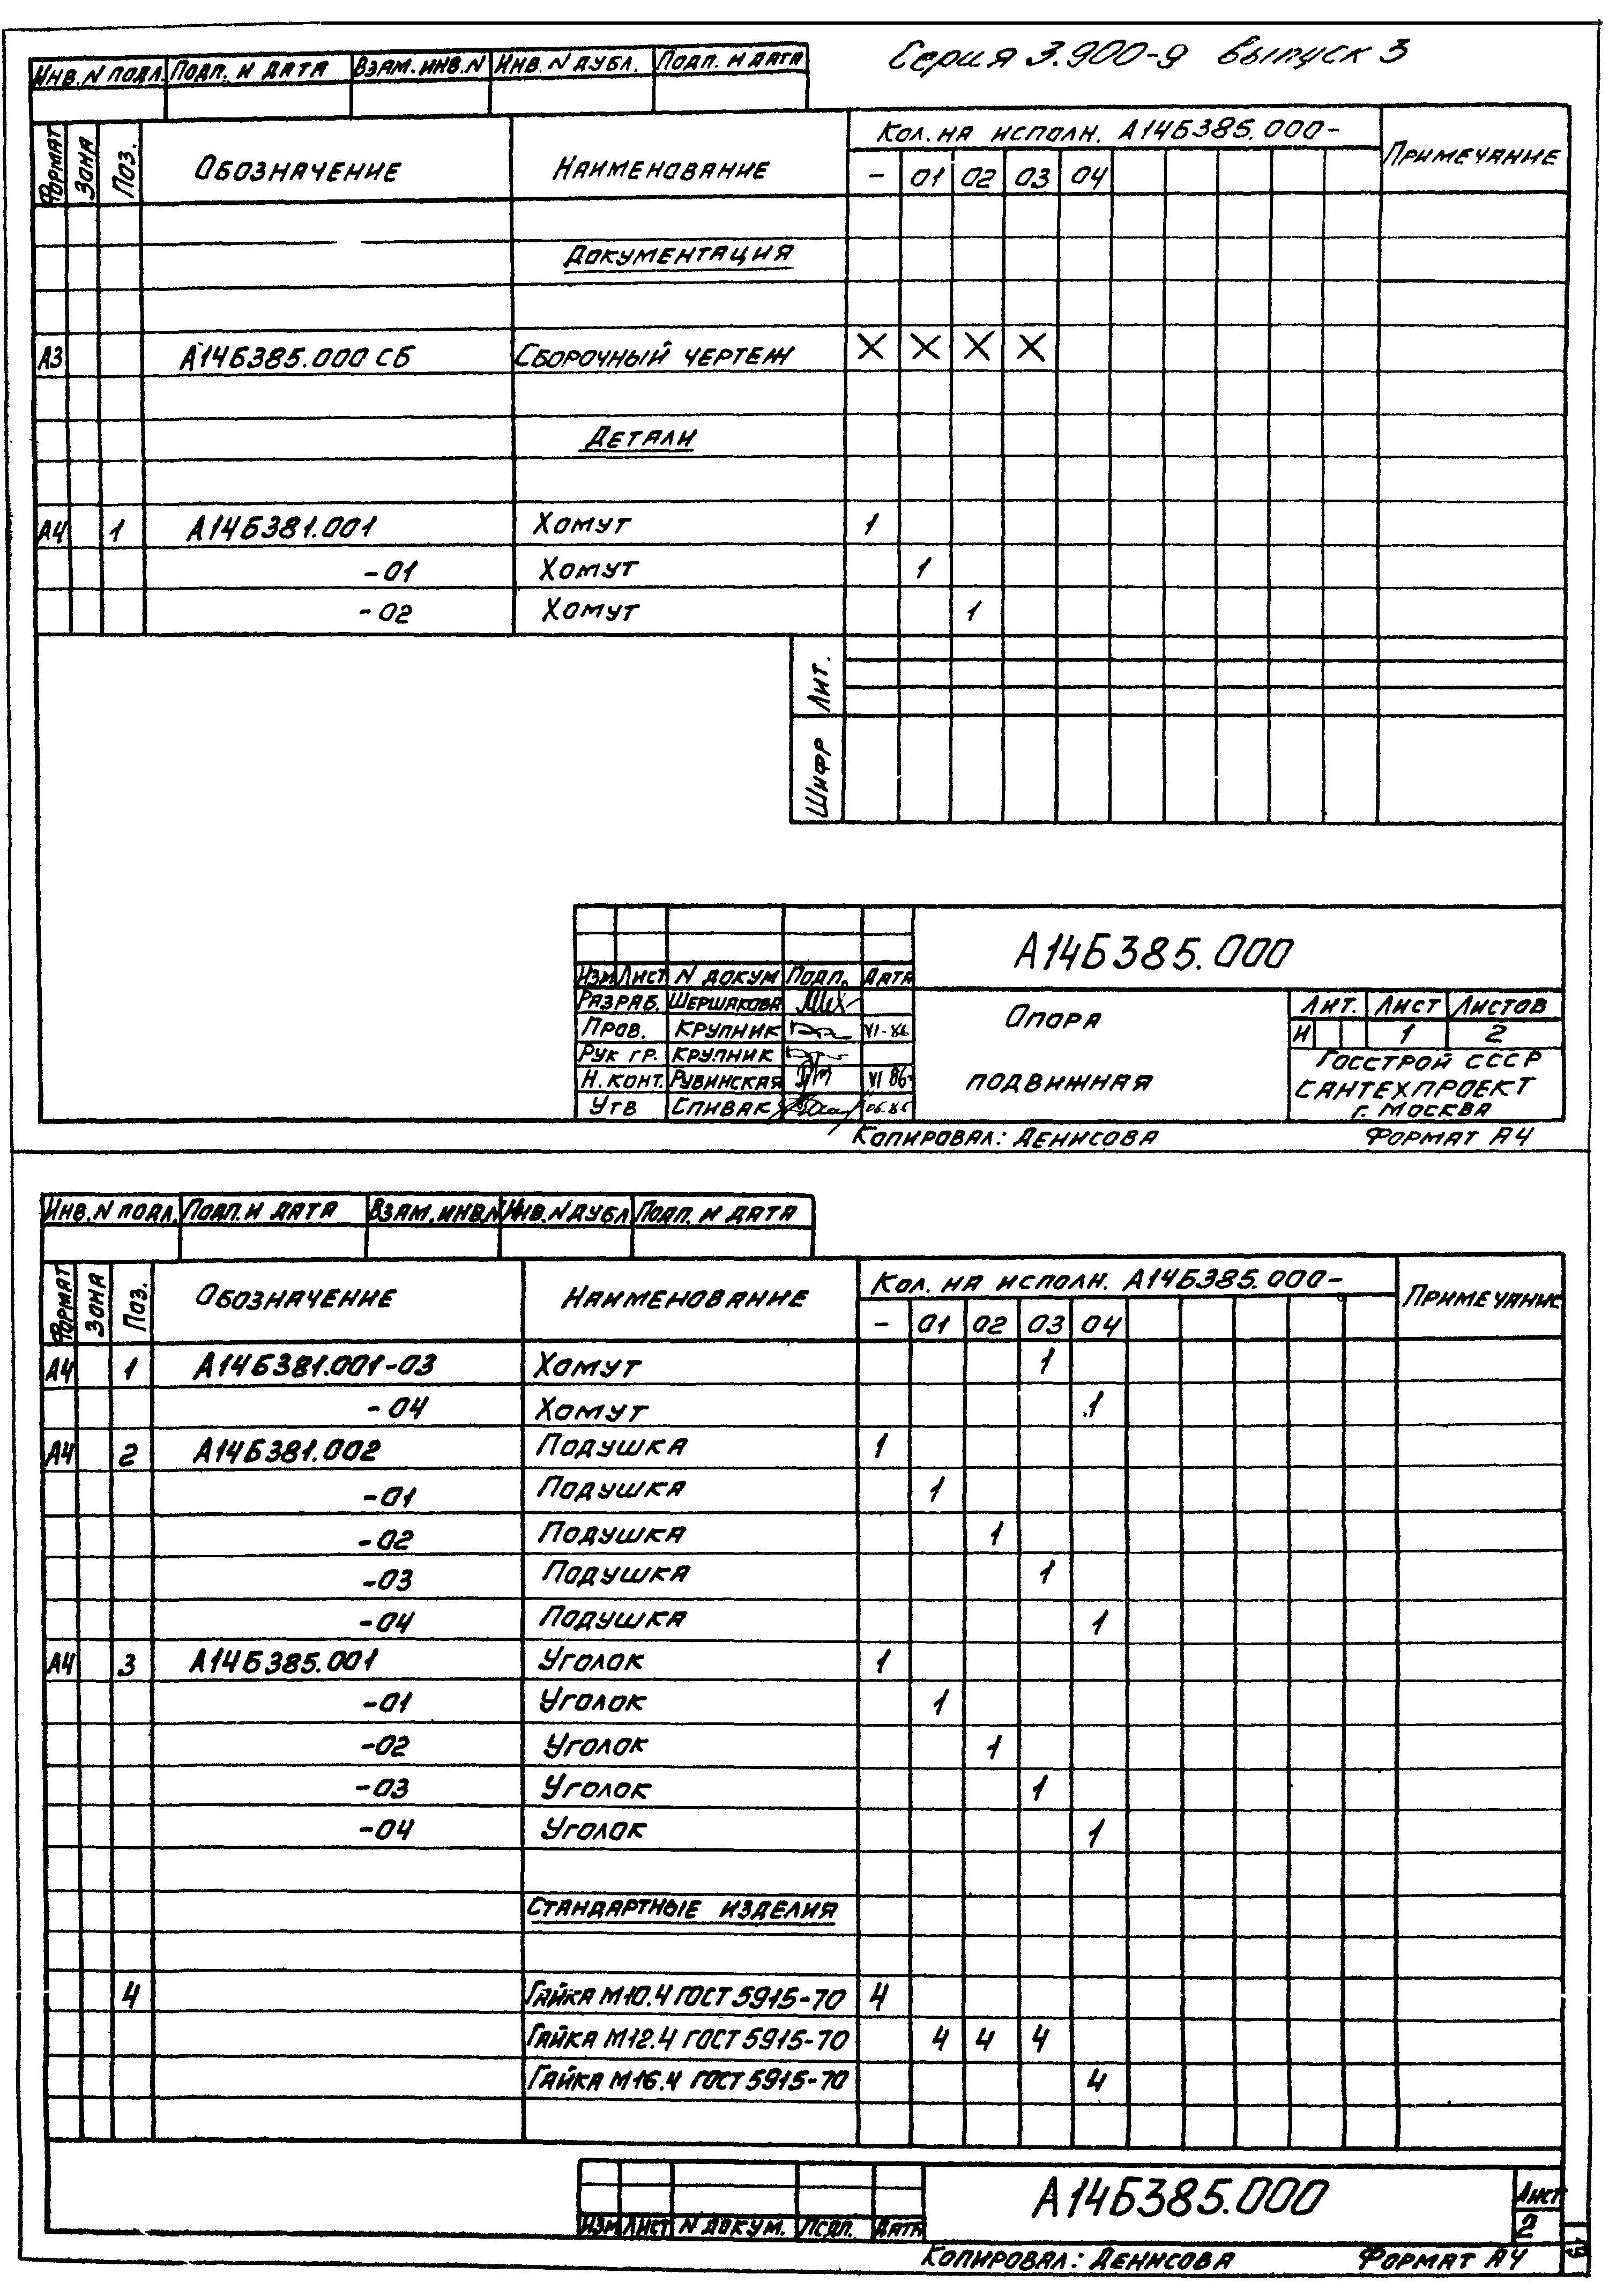 Серия 3.900-9 выпуск 3
Инв. N подл. Подп. и дата Взам. инв. N Инв. N дубл. Подп. и дата
Формат Зона Поз. Обозначение Наименование Кол. на исполн. А14Б385.000- Примечание
- 01 02 03 04
Документация
А3 А14Б385.000 СБ Сборочный чертеж X X X X
Детали
А4 1 А14Б381.001 Хомут 1
-01 Хомут 1
-02 Хомут 1
Лит.
Шифр
А14Б385.000
Изм Лист N докум Подп. Дата
Разраб. Шершакова
Пров. Крупник VI-86
Рук гр. Крупник
Н. конт. Рувинская VI 86
Утв Спивак 06.86
Опора
подвижная
Лит. Лист Листов
И 1 2
Госстрой СССР
Сантехпроект
г. Москва
Копировал: Денисова Формат А4
Инв. N подл. Подп. и дата Взам. инв. N Инв. N дубл Подп. и дата
Формат Зона Поз. Обозначение Наименование Кол. на исполн. А14Б385.000- Примечание
- 01 02 03 04
А4 1 А14Б381.001-03 Хомут 1
-04 Хомут 1
А4 2 А14Б381.002 Подушка 1
-01 Подушка 1
-02 Подушка 1
-03 Подушка 1
-04 Подушка 1
А4 3 А14Б385.001 Уголок 1
-01 Уголок 1
-02 Уголок 1
-03 Уголок 1
-04 Уголок 1
Стандартные изделия
4 Гайка М10.4 ГОСТ 5915-70 4
Гайка М12.4 ГОСТ 5915-70 4 4 4
Гайка М16.4 ГОСТ 5915-70 4
А14Б385.000
Лист
2
Изм Лист N докум. Подп. Дата
Копировал: Денисова Формат А4